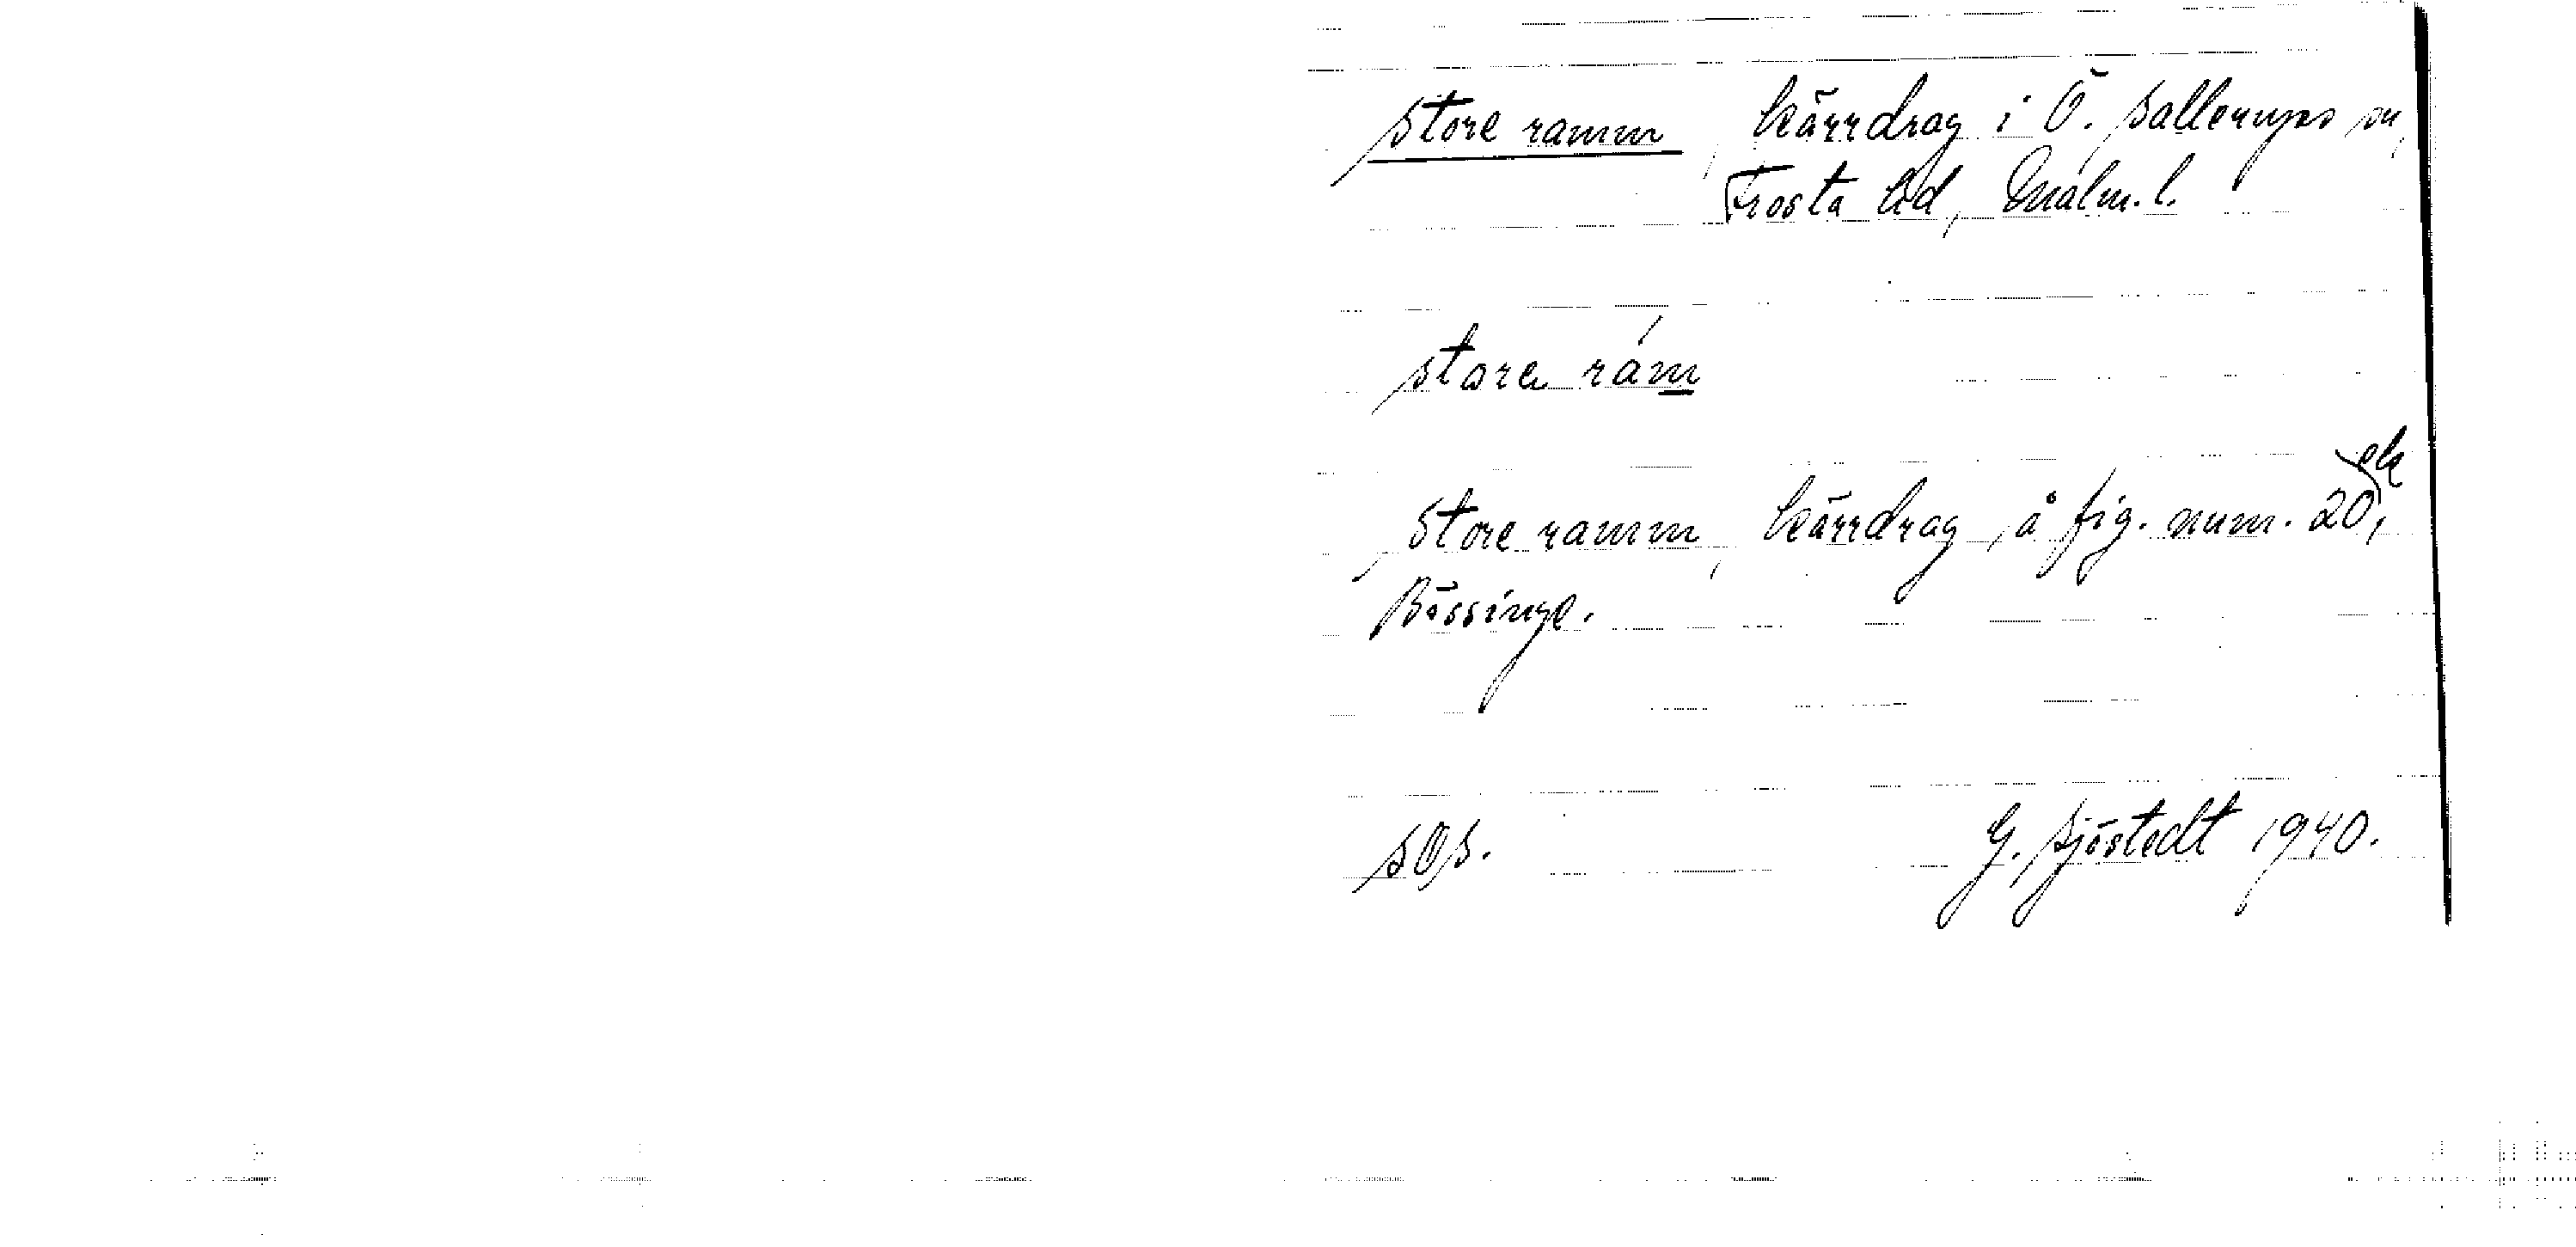 Store ramm, kärrdrag i Ö. Sallerups sn,
Frosta hd, Malm. l.
store rám
Store ramm, kärrdrag å fig. num. 20, ek
Bössinge.
SOS. G. Sjöstedt 1940.